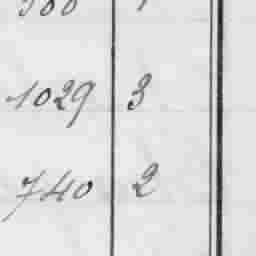 1029 3
740 2